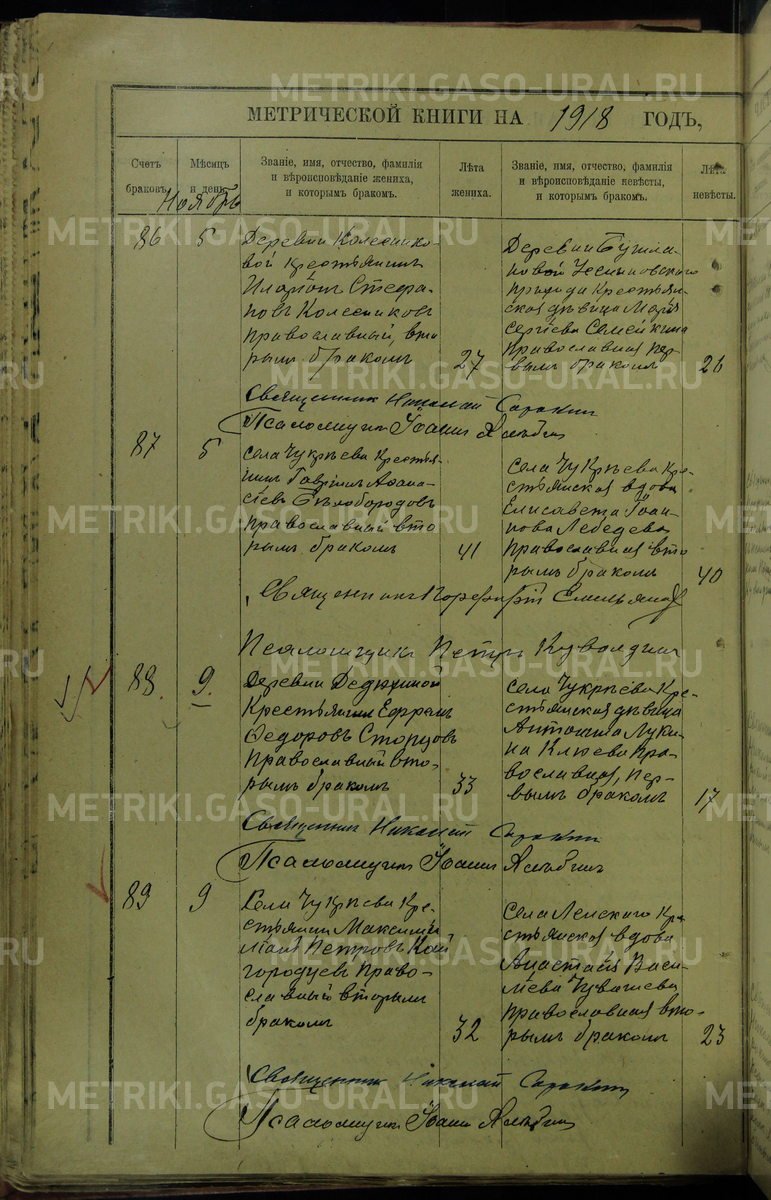 METRIKI.GASO-URAL.RU
МЕТРИЧЕСКОЙ КНИГИ НА 1918 ГОДЪ,
Счетъ
браковъ.
Мѣсяцъ
и день.
Званіе, имя, отчество, фамилія
и вѣроисповѣданіе жениха,
и которымъ бракомъ.
Лѣта
жениха.
Званіе, имя, отчество, фамилія
и вѣроисповѣданіе невѣсты,
и которымъ бракомъ.
Лѣта
невѣсты.
Ноябрь
86
5
Деревни Колеснико-
вой крестьянинъ
Стефа-
новъ Колесниковъ
православный, вто
рымъ бракомъ
27
Деревни
крестьян-
ская дѣвица Марія
Сергіева Семейкина
Православная пер-
вымъ бракомъ
26
Священникъ Николай
Псаломщикъ Іоаннъ
87
5
Села Чукрѣева крестья-
нинъ Гавріилъ Аѳана-
сіевъ Бѣлобородовъ
православный вто
рымъ бракомъ
41
Села Чукрѣева кре-
стьянская вдова
Елисавета Іоан-
нова Лебедева
православная вто
рымъ бракомъ
40
Священникъ
Псаломщикъ Петръ
88
9
Деревни Дедюхиной
Крестьянинъ Ефремъ
Ѳедоровъ
Православный вто-
рымъ бракомъ
33
Села Чукрѣева кре-
стьянская дѣвица
Антонина Луки-
на Клюева пра-
вославная, пер-
вымъ бракомъ
17
Священникъ Николай
Псаломщикъ Іоаннъ
89
9
Села Чукрѣева кре-
стьянинъ Максимил-
ліанъ Петровъ Кай
городцевъ Право-
славный вторымъ
бракомъ
32
Села Ленскаго кре
стьянская вдова
Анастасія Васи-
ліева Чувашева
православная вто-
рымъ бракомъ
23
Священникъ Николай
Псаломщикъ Іоаннъ